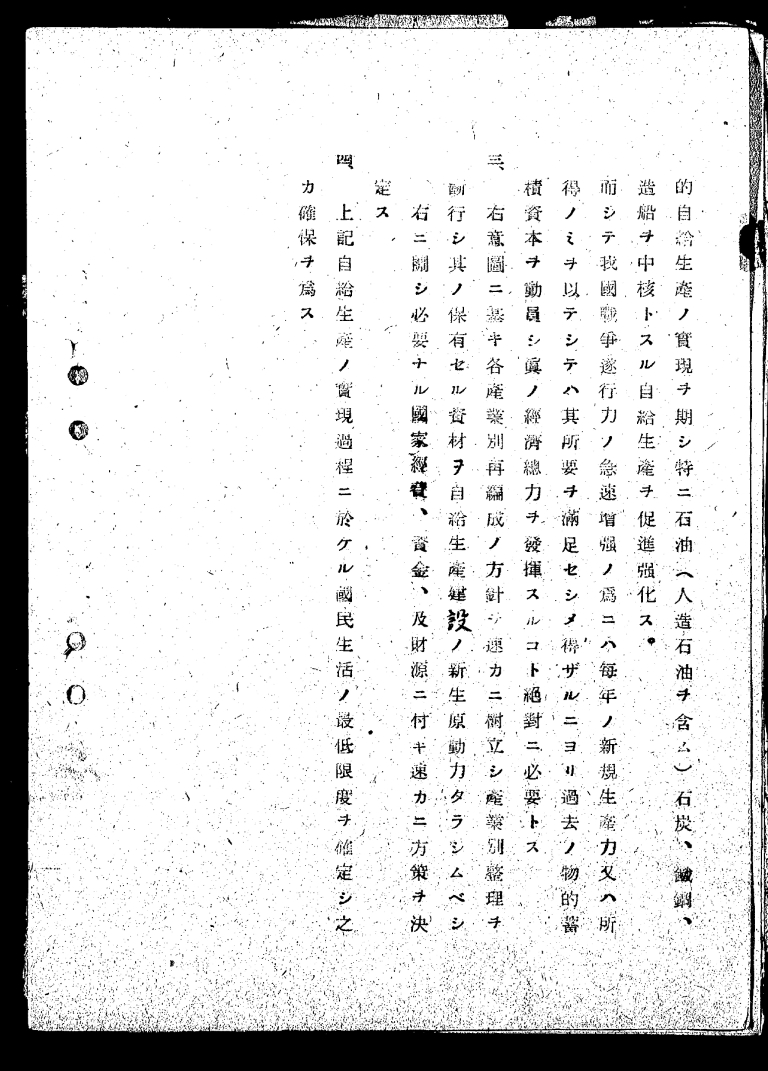 的自給生產ノ實現ヲ期シ特ニ石油(人造石油ヲ含ム)石炭、鐵鋼、
造船ヲ中核トスル自給生產ヲ促進强化ス。
而シテ我國戰爭遂行力ノ急速增强ノ爲ニハ每年ノ新規生產力又ハ所
得ノミヲ以テシテハ其所要ヲ滿足セシメ得ザルニヨリ過去ノ物的蓄
積資本ヲ動員シ眞ノ經濟總力ヲ發揮スルコト絕對ニ必要トス
三、右意圖ニ基キ各產業別再編成ノ方針ヲ速カニ樹立シ產業別整理ヲ
斷行シ其ノ保有セル資材ヲ自給生產建設ノ新生原動力タラシムベシ
右ニ關シ必要ナル國家經費、資金、及財源ニ付キ速カニ方策ヲ決
定ス
四、上記自給生產ノ實現過程ニ於ケル國民生活ノ最低限度ヲ確定シ之
カ確保ヲ爲ス